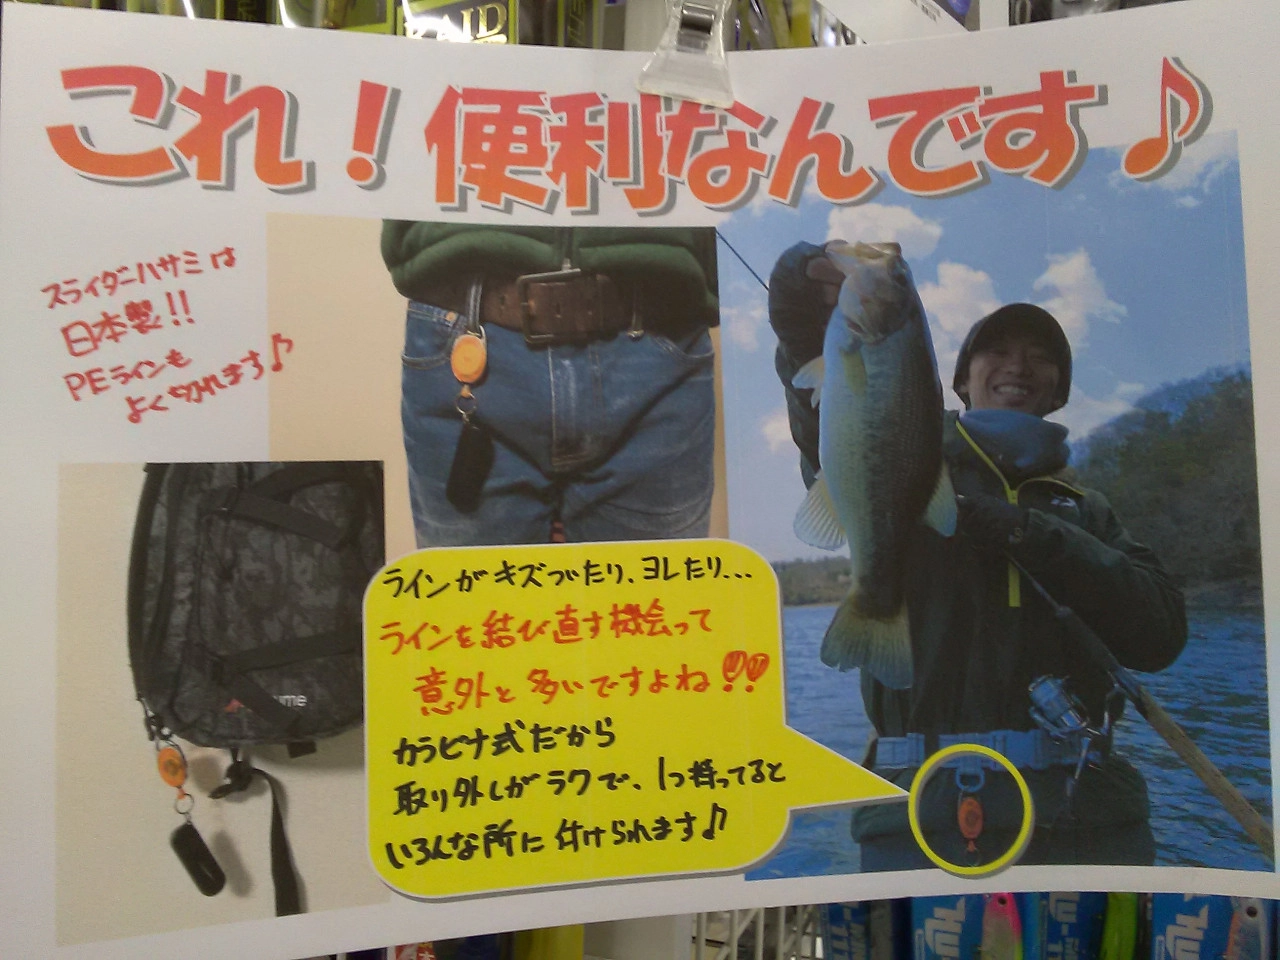 これ！便利なんです♪
スライダーハサミは
日本製!!
PEラインも
よく切れます♪
ラインがキズついたり、ヨレたり...
ラインを結び直す機会って
意外と多いですよね!!
カラビナ式だから
取り外しがラクで、1つ持ってると
いろんな所に付けられます♪